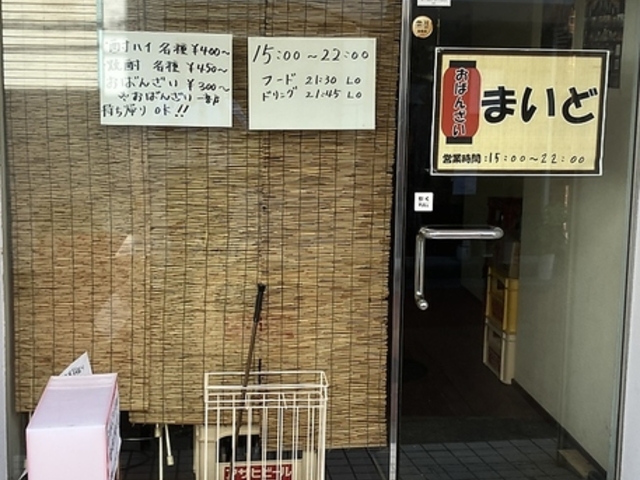 酎ハイ 各種 ¥400~
焼酎 各種 ¥450~
おばんざい ¥300~
※おばんざい一部
持ち帰り OK!!
15:00~22:00
フード 21:30 LO
ドリンク 21:45 LO
おばんざい
まいど
営業時間:15:00~22:00
アサヒビール